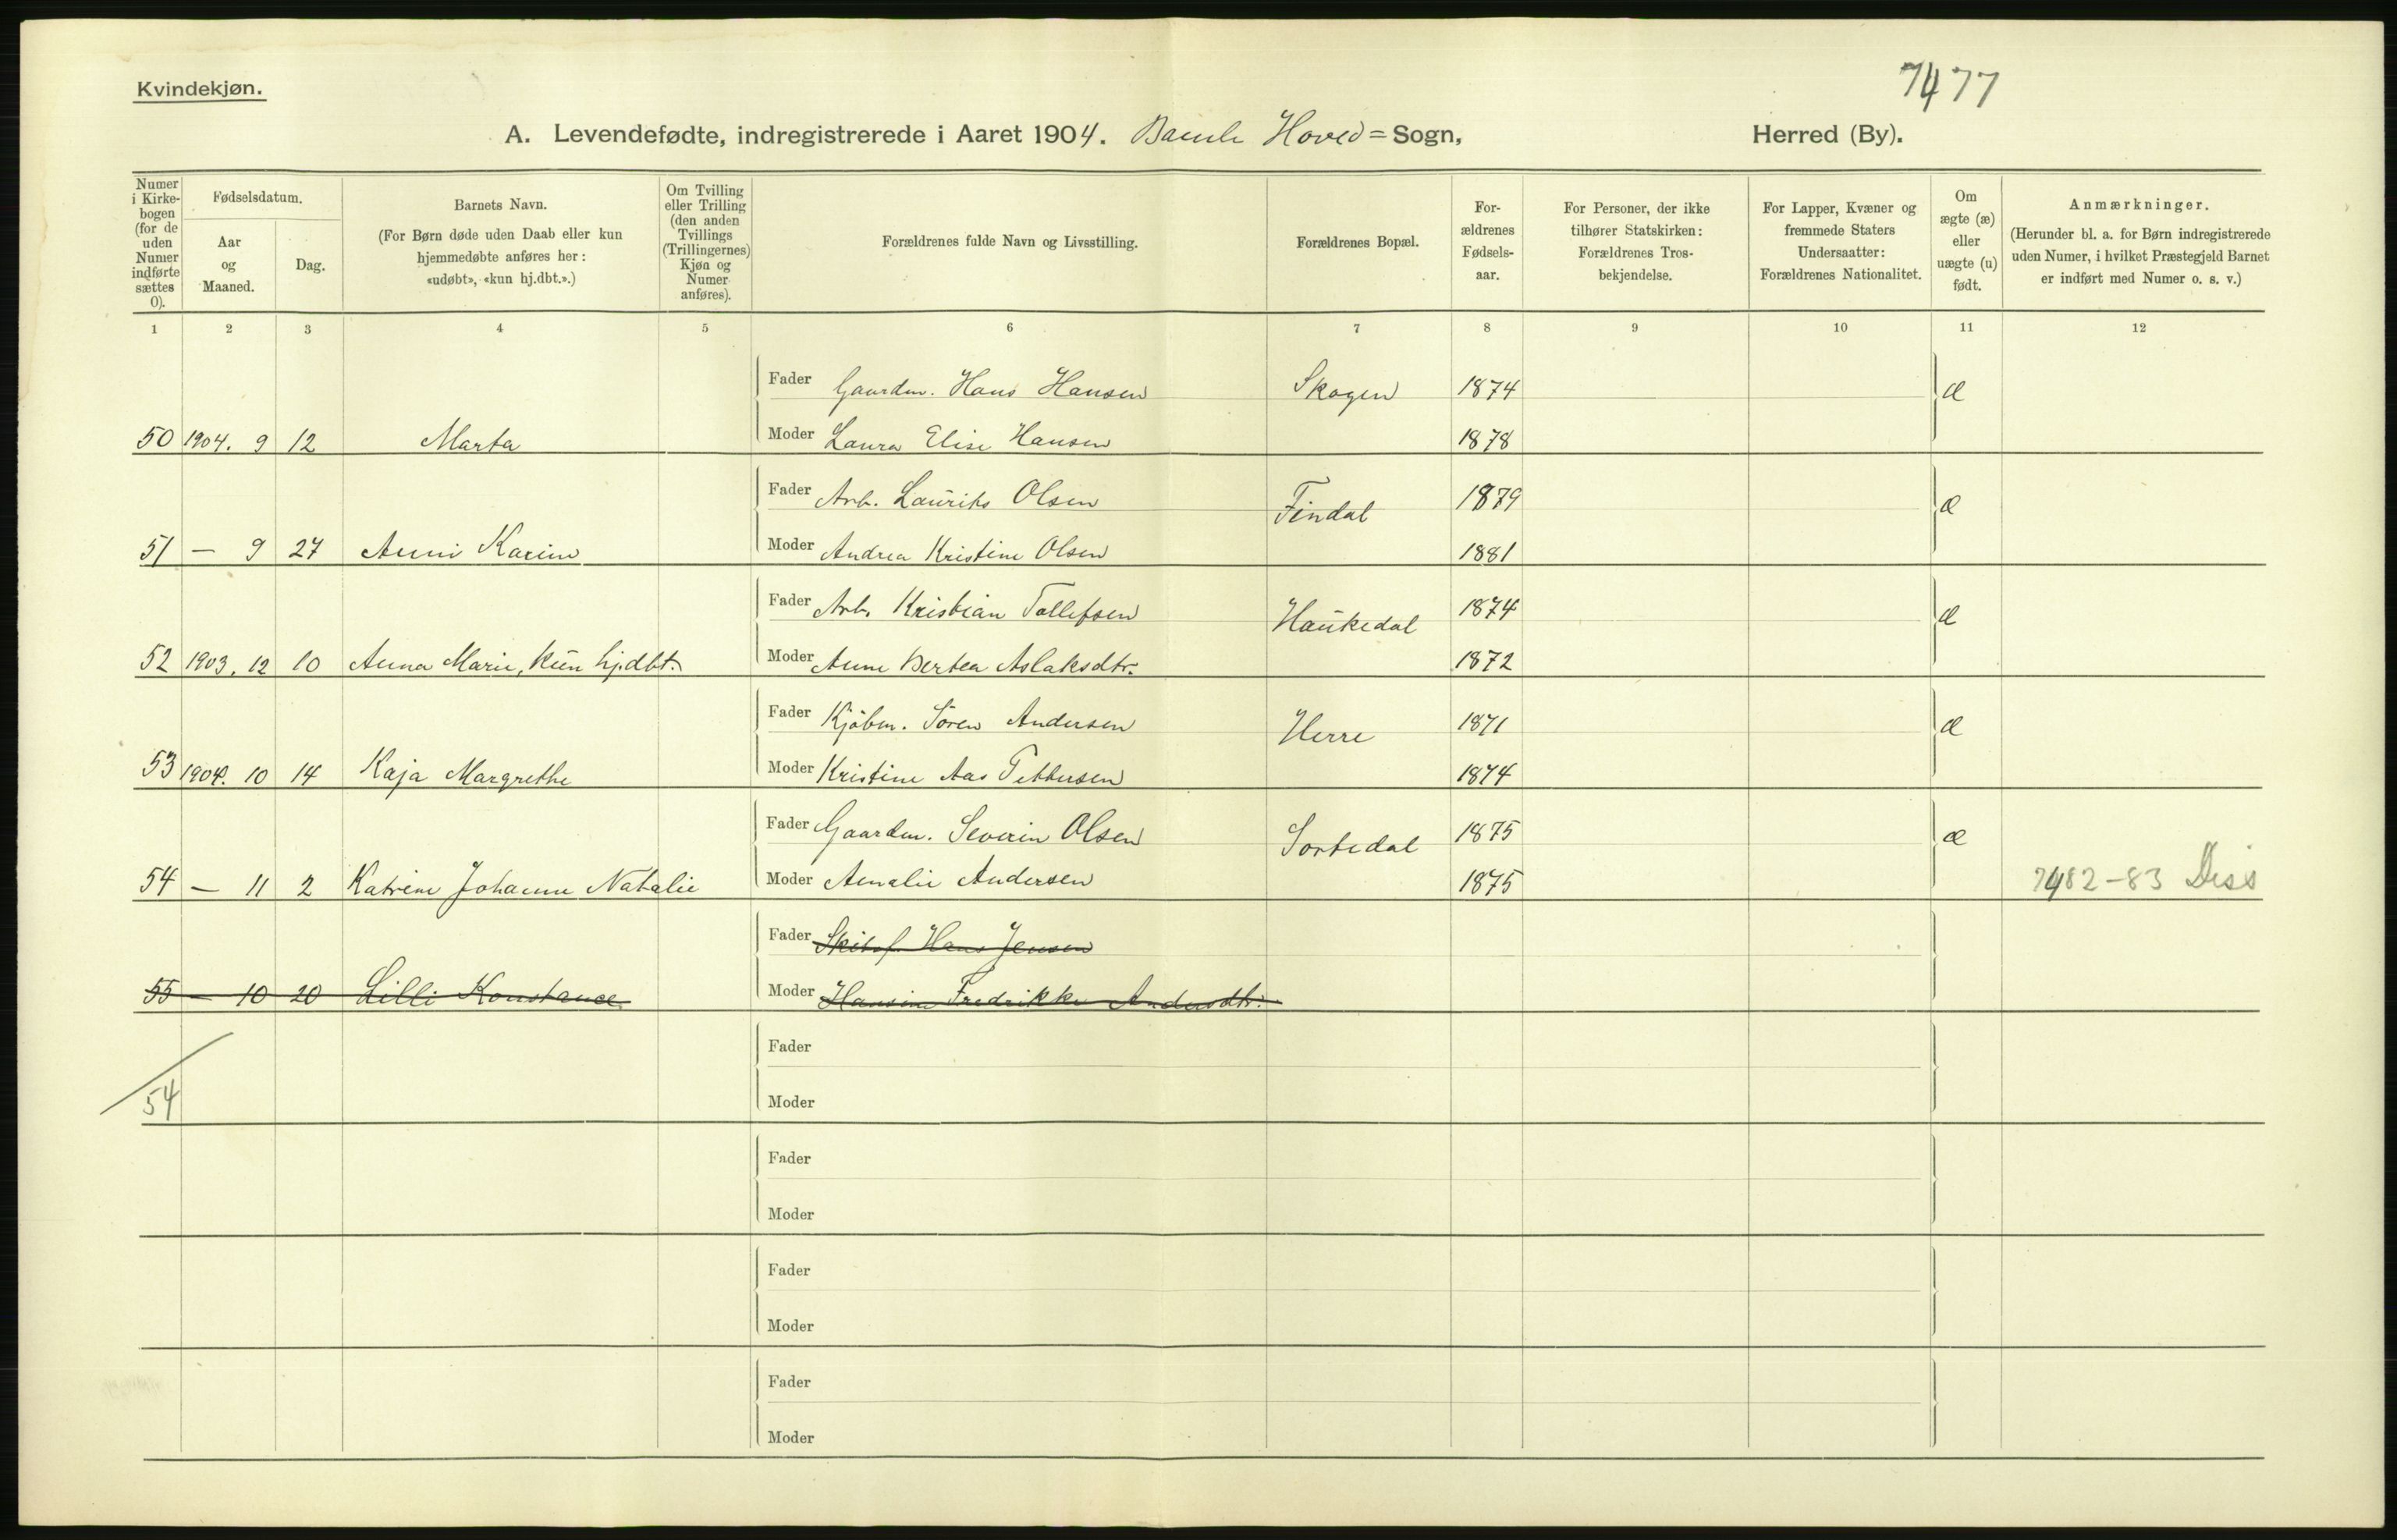 Kvindekjøn.
7477
A. Levendefødte, indregistrerede i Aaret 1904. Bamle Hoved=Sogn, Herred (By).
Numer i Kirkebogen (for de uden Numer indførte sættes 0).
Fødselsdatum.
Aar og Maaned.
Dag.
Barnets Navn.
(For Børn døde uden Daab eller kun hjemmedøbte anføres her: «udøbt», «kun hj.dbt.».)
Om Tvilling eller Trilling (den anden Tvillings (Trillingernes) Kjøn og Numer anføres).
Forældrenes fulde Navn og Livsstilling.
Forældrenes Bopæl.
Forældrenes Fødselsaar.
For Personer, der ikke tilhører Statskirken: Forældrenes Trosbekjendelse.
For Lapper, Kvæner og fremmede Staters Undersaatter: Forældrenes Nationalitet.
Om ægte (æ) eller uægte (u) født.
Anmærkninger.
(Herunder bl. a. for Børn indregistrerede uden Numer, i hvilket Præstegjeld Barnet er indført med Numer o. s. v.)
1 2 3 4 5 6 7 8 9 10 11 12
Fader Gaardm. Hans Hansen Skogen 1874 æ
50 1904. 9 12 Marta Moder Laura Elise Hansen 1878
Fader Arb. Laurits Olsen Findal 1879 æ
51 — 9 27 Anni Karine Moder Andrea Kristine Olsen 1881
Fader Arb. Kristian Tollefsen Haukedal 1874 æ
52 1903. 12 10 Anna Marie, kun hj.dbt. Moder Anne Bertea Aslaksdtr. 1872
Fader Kjøbm. Søren Andersen Herre 1871 æ
53 1904. 10 14 Kaja Margrethe Moder Kristine Aas Pettersen 1874
Fader Gaardm. Severin Olsen Sortedal 1875 æ
54 — 11 2 Katrine Johanne Natalie Moder Amalie Andersen 1875 7482-83 Diss
Fader Hans Jensen
55 — 10 20 Lilli Konstance Moder Hansine Fredrikke Andersdtr.
Fader
54 Moder
Fader
Moder
Fader
Moder
Fader
Moder